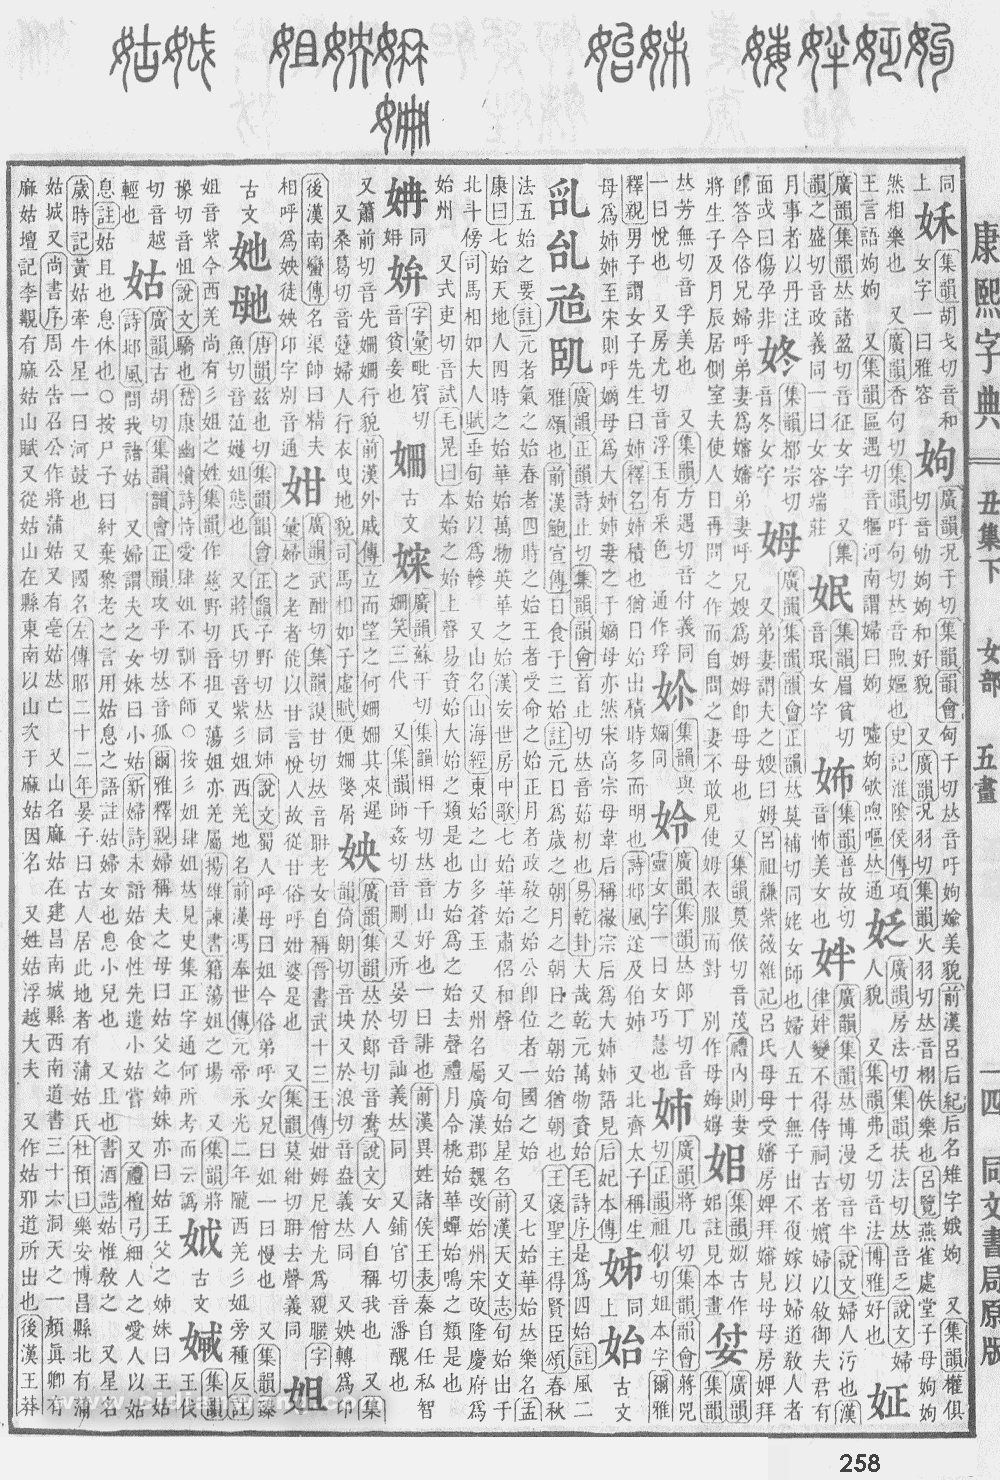 康熙字典
丑集下 女部 五畫
一四 同文書局原版
同上
集韻胡戈切音和女字一曰雅容
姁
廣韻况于切集韻韻會匈于切𠀤音吁姁媮美貌前漢呂后紀后名雉字娥姁 又集韻權俱切音劬姁姁和好貌 又廣韻况羽切集韻火羽切𠀤音栩佚樂也呂覽燕雀處堂子母姁姁
然相樂也 又廣韻香句切集韻吁句切𠀤音煦嫗也史記淮陰侯傳項王言語姁姁 又集韻區遇切音驅河南謂婦曰姁 噓姁欨喣嘔𠀤通
姂
廣韻房法切集韻扶法切𠀤音乏說文婦人貌 又集韻弗乏切音法博雅好也
姃
廣韻集韻𠀤諸盈切音征女字 又集韻之盛切音政義同一曰女容端莊
姄
集韻眉貧切音珉女字
㛍
集韻普故切音怖美女也
姅
廣韻集韻𠀤博漫切音半說文婦人污也漢律姅變不得侍祠古者嬪婦以敘御夫君有
月事者以丹注面或曰傷孕非
集韻都宗切音冬女字
姆
廣韻集韻韻會正韻𠀤莫補切同姥女師也婦人五十無子出不復嫁以婦道敎人者 又弟妻謂夫之嫂曰姆呂祖謙紫薇雜記呂氏母母受嬸房婢拜嬸見母母房婢拜
卽答今俗兄婦呼弟妻爲嬸嬸弟妻呼兄嫂爲姆姆卽母母也 又集韻莫候切音茂禮內則妻將生子及月辰居側室夫使人日再問之作而自問之妻不敢見使姆衣服而對 別作母娒
姐
娶註見本畫
𠀤芳無切音孚美也 又房尤切音浮玉有采色 又集韻方遇切音付義同一曰悅也 通作琈
姈
廣韻集韻𠀤郎丁切音靈女字一曰女巧慧也
姉
廣韻將几切集韻韻會將兕切正韻祖似切姐本字爾雅
釋親男子謂女子先生曰姉釋名姉積也猶日始出積時多而明也詩邶風遂及伯姉 又北齊太子稱生母爲姉姉至宋則呼嫡母爲大姉姉妻之于嫡母亦然宋高宗母韋后稱徽宗后爲大姉姉語見后妃本傳
姊
同上
始
古文
廣韻正韻詩止切集韻韻會首止切𠀤音菇初也易乾卦大哉乾元萬物資始毛詩序是爲四始註風二雅頌也前漢鮑宣傳日食于三始註元日爲歲之朝月之朝日之朝始猶朝也王襃聖主得賢臣頌春秋
法五始之要註元者氣之始春者四時之始王者受命之始正月者政敎之始公卽位者一國之始 又七始華始𠀤樂名孟康曰七始天地人四時之始華始萬物英華之始漢安世房中歌七始華始肅倡和聲 又旬始星名前漢天文志旬始出于
北斗傍司馬相如大人賦垂旬始以爲幓 又山名山海經東始之山多蒼玉 又州名屬廣漢郡魏改始州宋改隆慶府爲始州 又式吏切音試毛晃曰本始之始上聲易資始大始之類是也方始爲之始去聲禮月令桃始華蟬始鳴之類是也
姌
同姌
姘
字彙毗賓切音貧妾也
姍
古文
廣韻蘇干切集韻相干切𠀤音山好也一曰誹也前漢異姓諸侯王表秦自任私智姍笑三代 又集韻師姦切音刪又所晏切音訕義𠀤同 又鋪官切音潘醜也
又蕭前切音先姍姍行貌前漢外戚傳立而望之何姍姍其來遲 又桑葛切音躠婦人行衣曳地貌司馬相如子虛賦便姍嫳屑
姎
廣韻集韻𠀤於郞切音鴦說文女人自稱我也 又集韻倚朗切音坱又於浪切音盎義𠀤同 又姎轉爲卬
後漢南蠻傳名渠帥曰精夫相呼爲姎徒姎卬字別音通
姏
廣韻武酣切集韻謨甘切𠀤音聃老女自稱晉書武十三王傳姏姆尼僧尤爲親暱字彙婦之老者能以甘言悅人故從甘俗呼姏婆是也 又集韻莫紺切聃去聲義同
姐
古文
唐韻茲也切集韻韻會正韻子野切𠀤同姉說文蜀人呼母曰姐今俗弟呼女兄曰姐一曰慢也 又集韻臻魚切音葅嫭姐態也 又蔣氏切音紫彡姐西羌地名前漢馮奉世傳元帝永光二年隴西羌彡姐旁種反註
姐音紫今西羌尚有彡姐之姓集韻作慈野切音抯又蕩姐亦羌屬揚雄諫書籍蕩姐之場 又集韻將豫切音怚說文驕也嵇康幽憤詩恃愛肆姐不訓不師○按彡姐肆姐𠀤見史集正字通何所考而云譌
娍
古文
切音越輕也
姑
廣韻古胡切集韻韻會正韻攻乎切𠀤音孤爾雅釋親婦稱夫之母曰姑父之姉妹亦曰姑王父之姉妹曰王姑詩邶風問我諸姑 又婦謂夫之女妹曰小姑新婦詩未諳姑食性先遣小姑嘗 又禮檀弓細人之愛人以姑
息註姑且也息休也○按尸子曰紂棄黎老之言用姑息之語註姑婦女也息小兒也 又且也書酒誥姑惟敎之 又星名歲時記黃姑牽牛星一曰河鼓也 又國名左傳昭二十二年晏子曰古人居此地者有蒲姑氏杜預曰樂安博昌縣北有蒲
姑城又尚書序周公告召公作將蒲姑又有亳姑𠀤亡 又山名麻姑在建昌南城縣西南道書三十六洞天之一顏眞卿有麻姑壇記李覯有麻姑山賦又從姑山在縣東南以山次于麻姑因名 又姓姑浮越大夫 又作姑邪道所出也後漢王莽
258